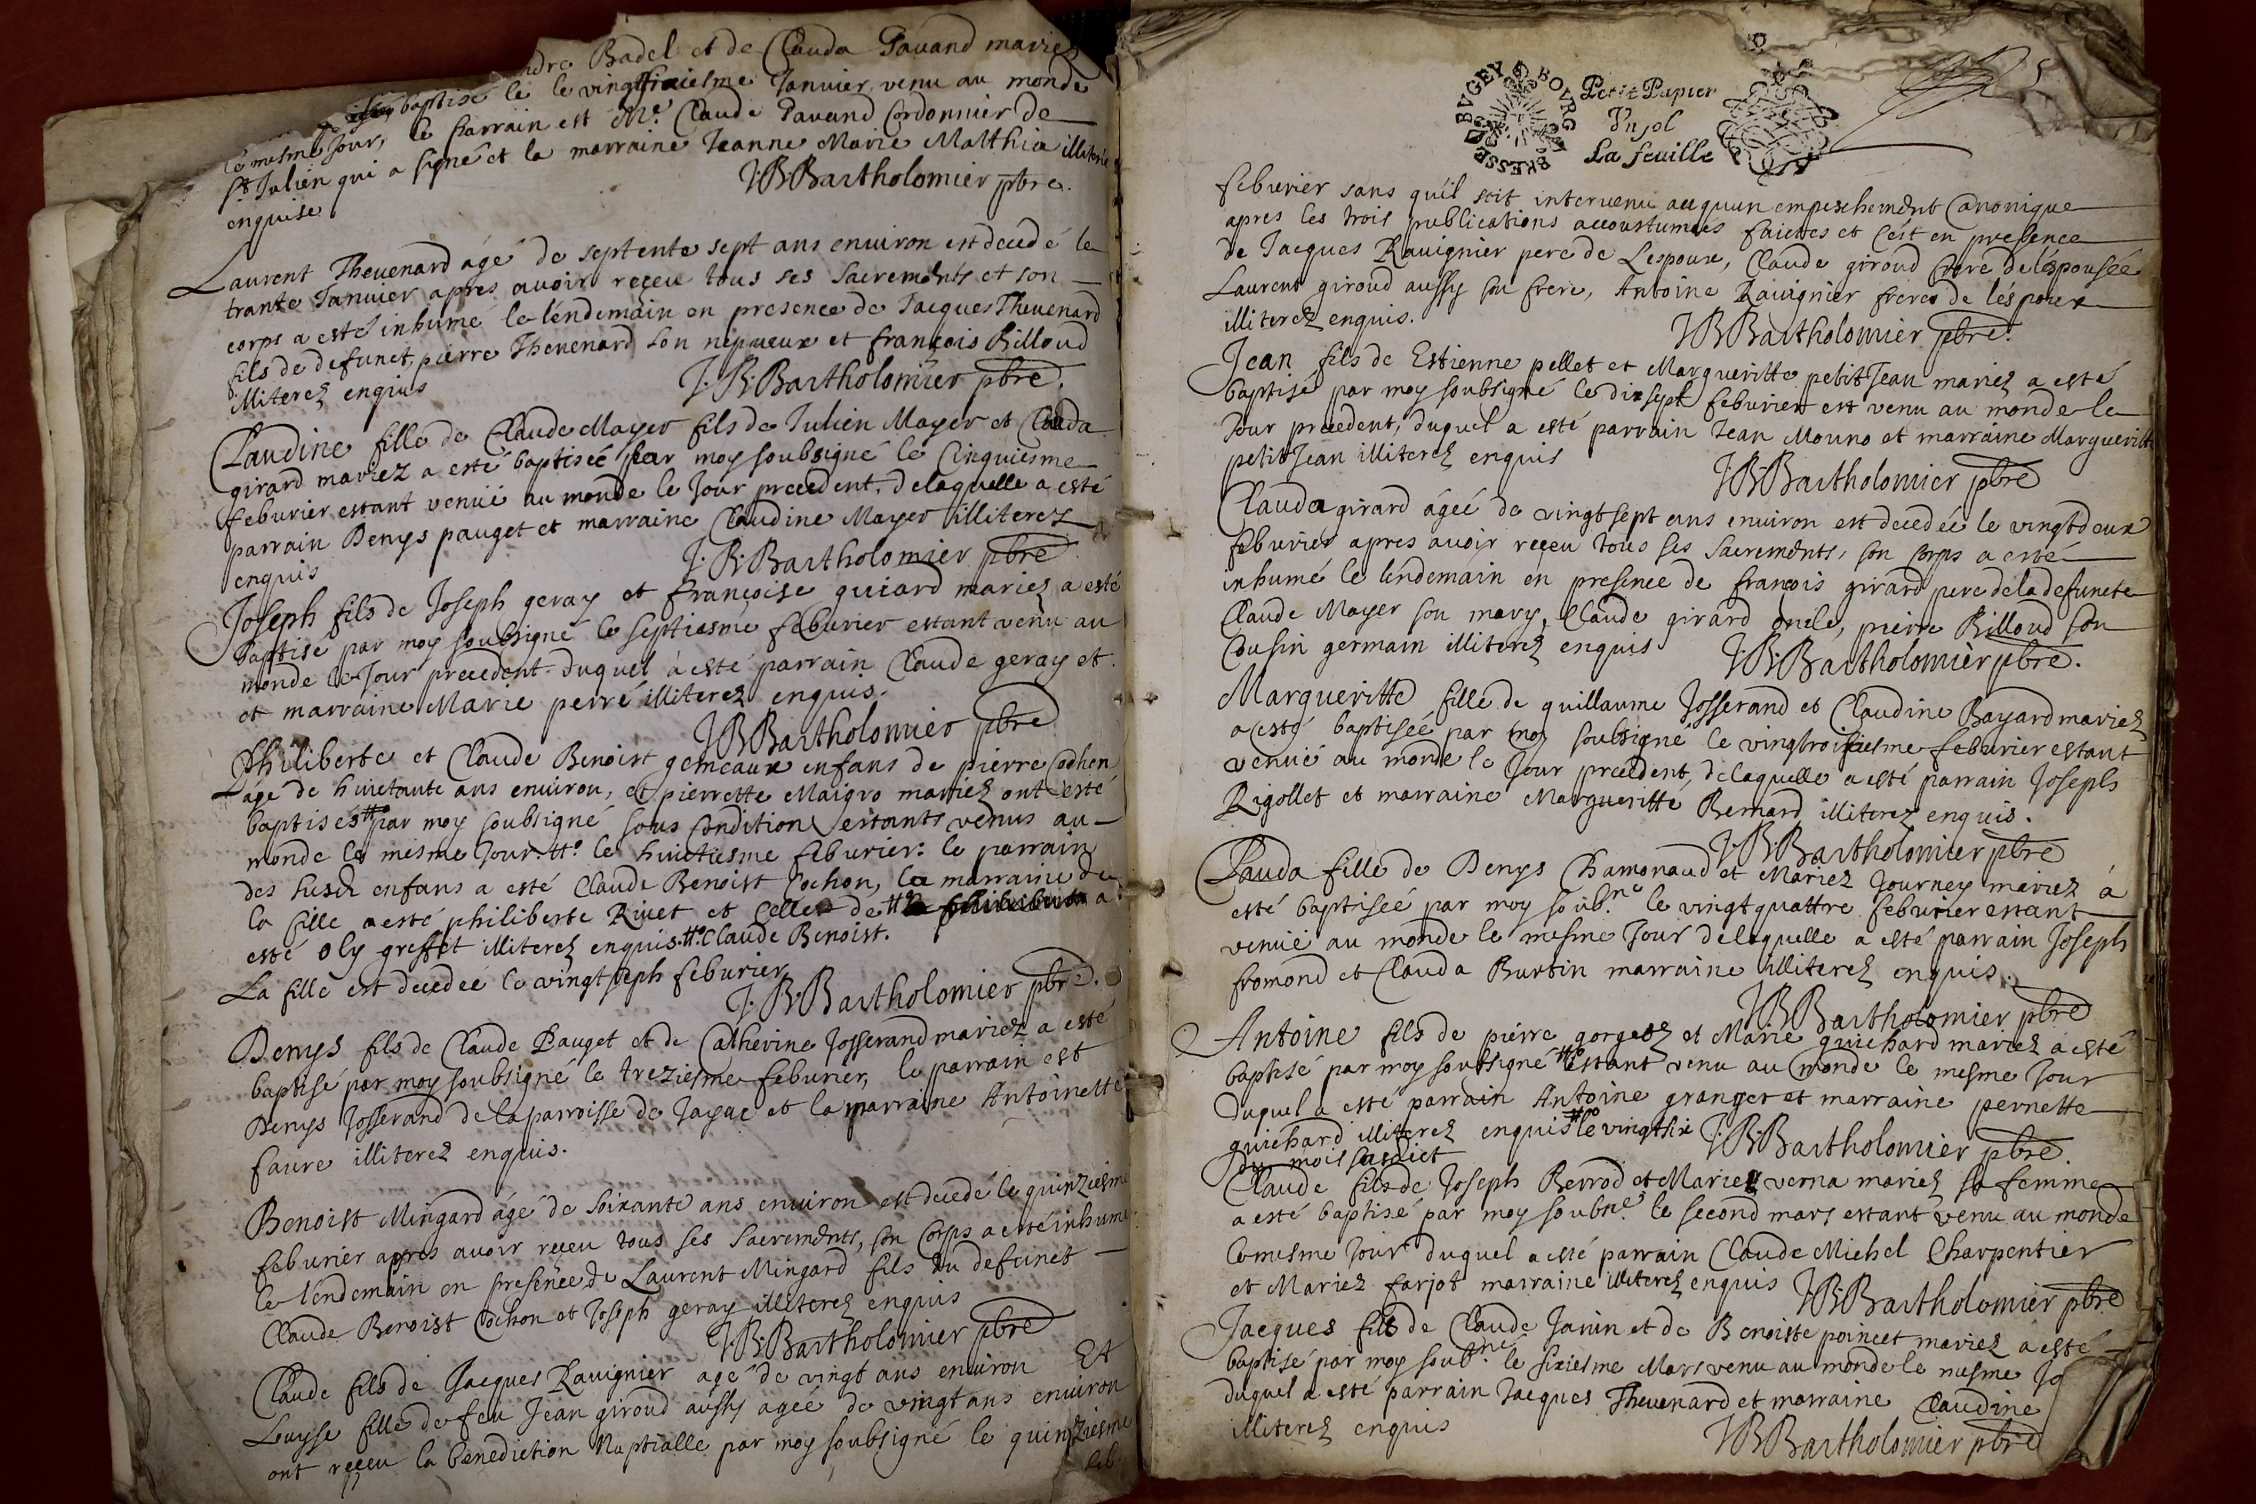 ndre Badel et de Clauda Pauand mariez
baptisé le le vingtsixiesme Januier, venu au monde
le mesme Jour, le Parrain est Me. Claude Pauand Cordonnier de
St Julien qui a signé et la marraine Jeanne Marie Matthia illiterée
enquise
J:B:Bartholomier pbre.
Laurent Theuenard âgé de septente sept ans enuiron est decedé le
trante Januier apres auoir reçeu tous ses sacrements et son
corps a esté inhumé le lendemain en presence de Jacques Theuenard
fils de defunct, pierre Theuenard son nepueux et françois Billoud
illiterez enquis
J:B:Bartholomier pbre.
Claudine fille de Claude Mayer fils de Julien Mayer et Clauda
girard mariez a esté baptiseé par moy soubsigné le Cinquiesme
feburier estant venuë au monde le Jour precedent, delaquelle a esté
parrain Denys pauget et marraine Claudine Mayer illiterez
enquis
J:B:Bartholomier pbre
Joseph fils de Joseph geray et françoise guiard mariez a esté
baptisé par moy soubsigné le septiesme feburier estant venu au
monde le Jour precedent duquel à esté parrain Claude geray et
et marraine Marie perré illiterez enquis.
JBBartholomier pbre
Philiberte et Claude Benoist gemeaux enfans de pierre Cochon
âge de huictante ans enuiron, et pierrette Maigro mariez ont esté
baptisés par moy soubsigné sous Condition estants venus au
monde le mesme Jour. le huictiesme feburier: le parrain
des susdt enfans a esté Claude Benoist Cochon, la marraine de
la fille a esté philiberte Riuet et Celle de a
esté Oly greffet illiterez enquis. Claude Benoist.
La fille est decedeé le vingt seph feburier
J:B:Bartholomier pbre.
Denys fils de Claude Pauget et de Catherine Josserand mariez a esté
baptisé par moy soubsigné le treziesme feburier, le parrain est
Denys Josserand de la parroisse de Jayac et la marraine Antoinette
faure illiterez enquis.
Benoist Mingard âgé de soixante ans enuiron est decedé le quinziesme
feburier apres auoir reçeu tous ses sacrements, son Corps a esté inhumé
le lendemain en presence de Laurent Mingard fils du defunct
Claude Benoist Cochon et Joseph geray illiterez enquis
J:B:Bartholomier pbre
Claude fils de Jacques Rauignier agé de vingt ans enuiron Et
Louyse fille de feu Jean giroud aussy ageé de vingt ans enuiron
ont reçeu la benediction Nuptialle par moy soubsigné le quinziesme
feb
BRESSE BVGEY BOVRG
Petit Papier
Vn sol
La feuille
5
feburier sans qu'il soit interuenu aucquun empeschement Canonique
apres les trois publications accoustumeés faictes et c'est en presence
de Jacques Rauignier pere de Lespoux, Claude giroud frere de léspouseé
Laurent giroud aussy son frere, Antoine Rauignier frere de léspoux
illiterez enquis.
JBBartholomier pbre.
Jean fils de Estienne pellet et Margueritte petitJean mariez a esté
baptisé par moy soubsigné le dixsept feburier est venu au monde le
Jour precedent, duquel a esté parrain Jean Mouno et marraine Margueritte
petitJean illiterez enquis
JBBartholomier pbre
Clauda girard âgeé de vingtsept ans enuiron est decedeé le vingtdeux
feburier apres auoir reçeu tous ses sacrements, son Corps a esté
inhumé le lendemain en presence de françois girard pere dela defuncte
Claude Mayer son mary, Claude girard oncle, pierre Billoud son
Cousin germain illiterez enquis
J:B:Bartholomier pbre.
Margueritte fille de guillaume Josserand et Claudine Bayard mariez
a esté baptiseé par moy soubsigné le vingtroisiesme feburier estant
venuë au monde le Jour precedent, delaquelle a esté parrain Joseph
Rigollet et marraine Margueritte Bernard illiterez enquis.
JBBartholomier pbre
Clauda fille de Denys Chamonaud et Mariez Journey mariez à
esté baptiseé par moy soub.né le vingtquattre feburier estant
venuë au monde le mesme Jour delaquelle a esté parrain Joseph
fromond et Clauda Burtin marraine illiterez enquis.
JBBartholomier pbre
Antoine fils de pierre gorgetz et Marie guichard mariez a esté
baptisé par moy soubsigné estant venu au monde le mesme Jour
duquel a esté parrain Antoine granger et marraine pernette
guichard illiterez enquis le vingtsix
du mois susdict
J:B:Bartholomier pbre.
Claude fils de Joseph Perrod et Marie verna mariez sa femme
a esté baptisé par moy soubné. le second mars estant venu au monde
le mesme Jour duquel a esté parrain Claude Michel Charpentier
et Mariez farjot marraine illiterez enquis
J:B:Bartholomier pbre
Jacques fils de Claude Janin et de Benoiste poincet mariez a esté
baptisé par moy soub.né le sixiesme Mars venu au monde le mesme Jo
duquel a esté parrain Jacques Theuenard et marraine Claudine
illiterez enquis
JBBartholomier pbre